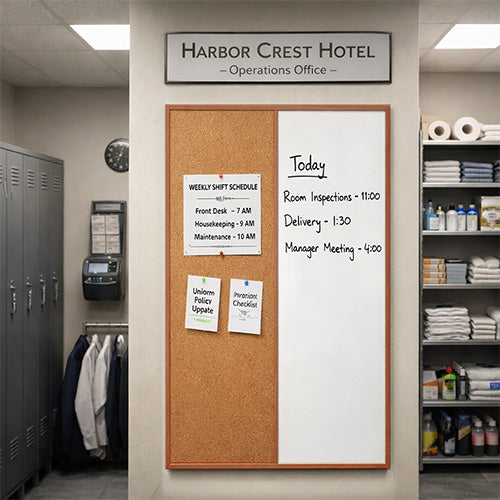 HARBOR CREST HOTEL
– Operations Office –
WEEKLY SHIFT SCHEDULE
Front Desk – 7 AM
Housekeeping - 9 AM
Maintenance - 10 AM
Uniorm
Policy
Uppate
Checklist
Today
Room Inspections - 11:00
Delivery - 1:30
Manager Meeting - 4:00